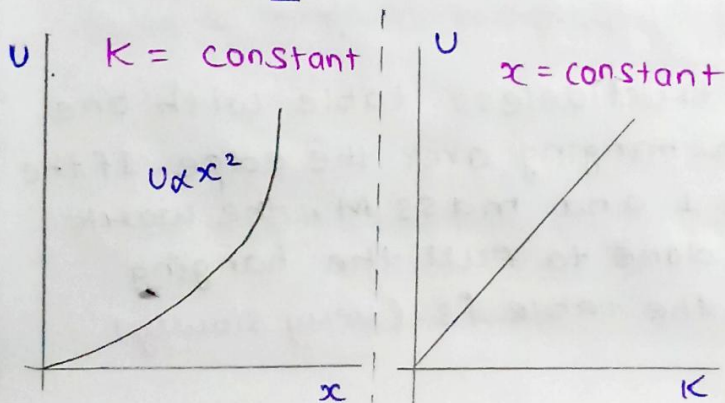 U
K = constant
U∝x²
x
U
x = constant
K